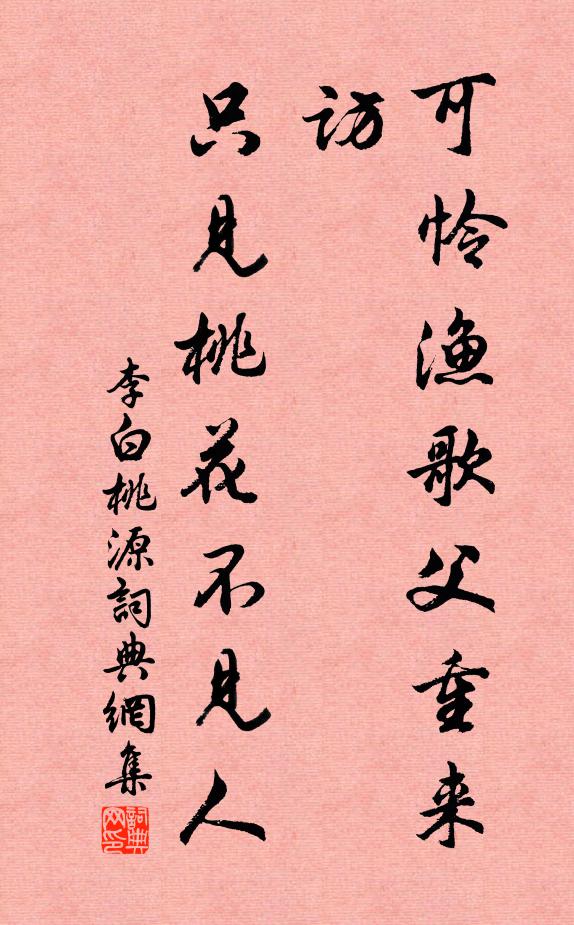 可怜渔歌父重来
访
只见桃花不见人
李白桃源詞典網集
詞典网印